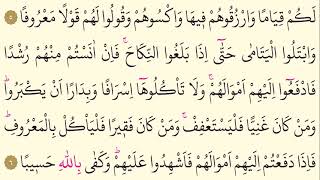 لَكُمْ قِيَامًا وَارْزُقُوهُمْ فِيهَا وَاكْسُوهُمْ وَقُولُوا لَهُمْ قَوْلًا مَعْرُوفًا ٥
وَابْتَلُوا الْيَتَامٰى حَتّٰٓى اِذَا بَلَغُوا النِّكَاحَۚ فَاِنْ اٰنَسْتُمْ مِنْهُمْ رُشْدًا
فَادْفَعُٓوا اِلَيْهِمْ اَمْوَالَهُمْۚ وَلَا تَأْكُلُوهَٓا اِسْرَافًا وَبِدَارًا اَنْ يَكْبَرُواۜ
وَمَنْ كَانَ غَنِيًّا فَلْيَسْتَعْفِفْۚ وَمَنْ كَانَ فَقِيرًا فَلْيَأْكُلْ بِالْمَعْرُوفِۜ
فَاِذَا دَفَعْتُمْ اِلَيْهِمْ اَمْوَالَهُمْ فَاَشْهِدُوا عَلَيْهِمْۜ وَكَفٰى بِاللّٰهِ حَسِيبًا ٦